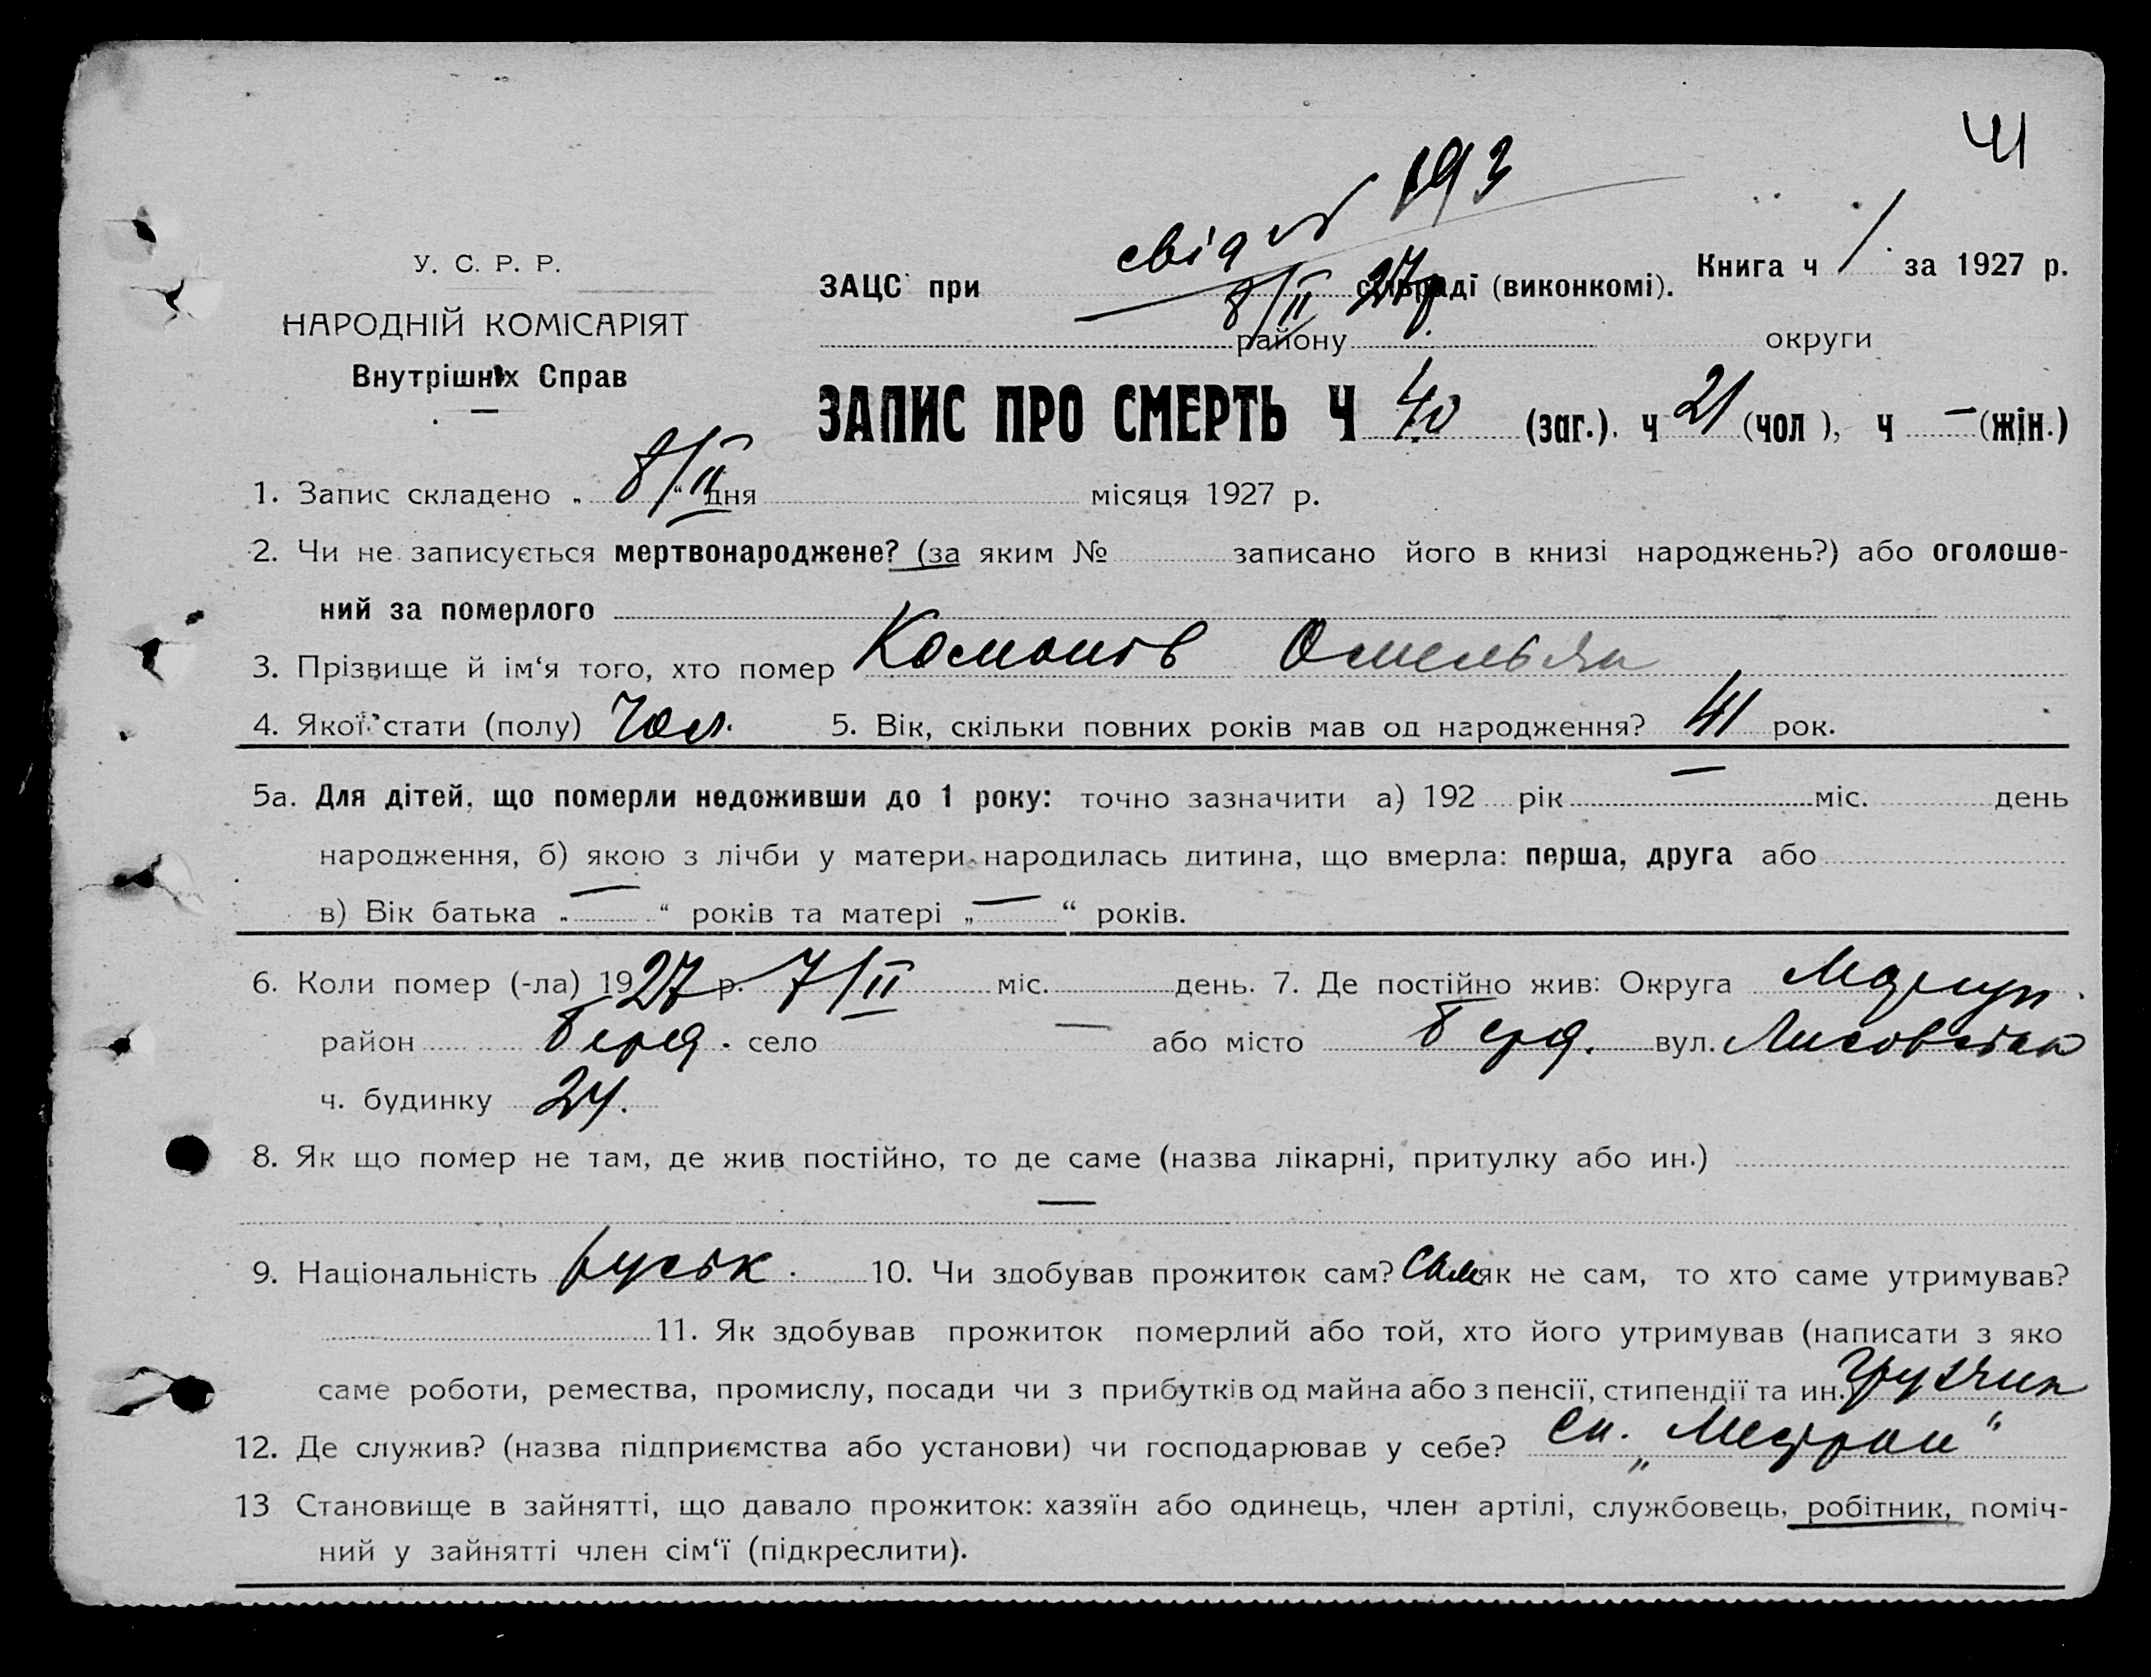 41
свід № 193
8/II 27р
У. С. Р. Р.
НАРОДНІЙ КОМІСАРІЯТ
Внутрішніх Справ
ЗАЦС при сільраді (виконкомі). Книга ч 1 за 1927 р.
району округи
ЗАПИС ПРО СМЕРТЬ Ч 40 (заг.). ч 21 (чол), ч — (жін.)
1. Запис складено „ 8/II “ дня місяця 1927 р.
2. Чи не записується мертвонароджене? (за яким № записано його в книзі народжень?) або оголоше-
ний за померлого
3. Прізвище й ім‘я того, хто помер Омельян
4. Якої стати (полу) Чол. 5. Вік, скільки повних років мав од народження? 41 рок.
5а. Для дітей, що померли недоживши до 1 року: точно зазначити а) 192 рік — міс. день
народження, б) якою з лічби у матери народилась дитина, що вмерла: перша, друга або
в) Вік батька „ — “ років та матері „ — “ років.
6. Коли помер (-ла) 1927 р. 7/II міс. день. 7. Де постійно жив: Округа Маріуп.
район Берд. село — або місто Берд. вул.
ч. будинку 24.
8. Як що помер не там, де жив постійно, то де саме (назва лікарні, притулку або ин.)
—
9. Національність руськ. 10. Чи здобував прожиток сам? Сам як не сам, то хто саме утримував?
11. Як здобував прожиток померлий або той, хто його утримував (написати з яко
саме роботи, ремества, промислу, посади чи з прибутків од майна або з пенсії, стипендії та ин. Грузчик
12. Де служив? (назва підприємства або установи) чи господарював у себе?
13 Становище в зайнятті, що давало прожиток: хазяїн або одинець, член артілі, службовець, робітник, поміч-
ний у зайнятті член сім‘ї (підкреслити).